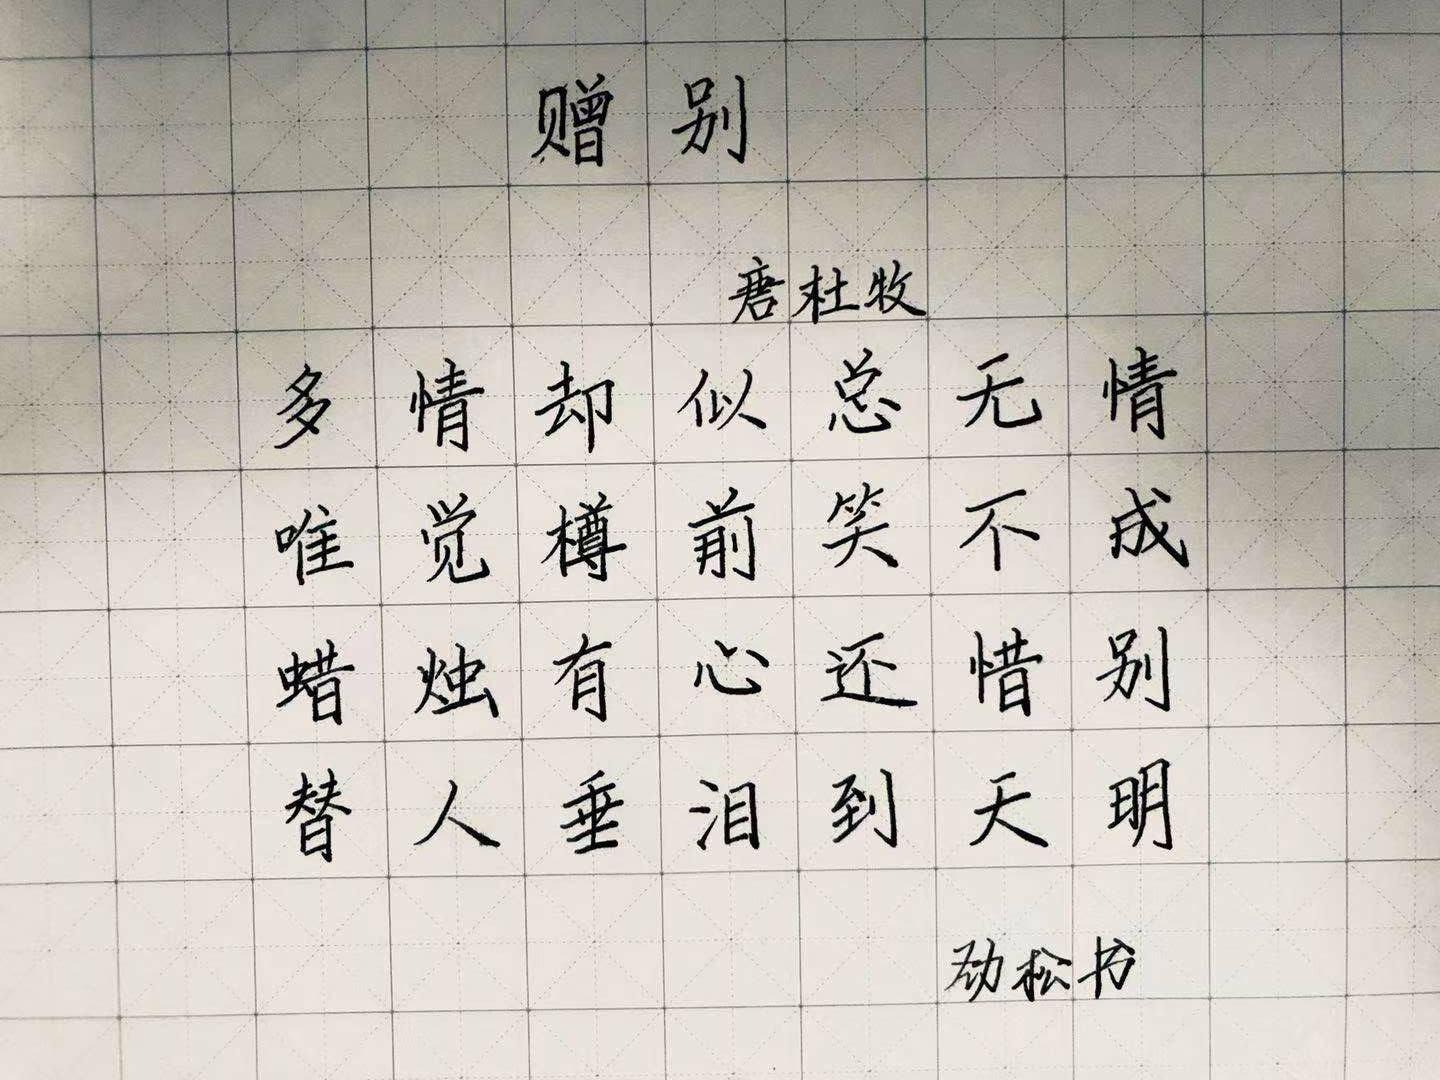 赠别
唐杜牧
多情却似总无情
唯觉樽前笑不成
蜡烛有心还惜别
替人垂泪到天明
劲松书